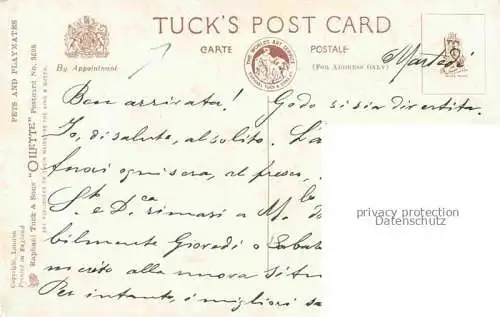 TUCK'S POST CARD
CARTE POSTALE
By Appointment
(FOR ADDRESS ONLY)
THE WORLD'S ART SERVICE
RAPHAEL TUCK & SONS LTD
Martedì
Ben arrivata! Godo si sia divertita.
Io, di salute, al solito. L'a
fuori ogni sera, al fresco.
St. e D.ca rimasi a M.
bilmente Giovedì o Sabat
merito alla nuova situ
Per intanto, i migliori sa
privacy protection
Datenschutz
PETS AND PLAYMATES
Raphael Tuck & Sons' "OILETTE" Postcard No.
ART PUBLISHERS TO THEIR MAJESTIES THE KING & QUEEN.
Copyright, London
Printed in England